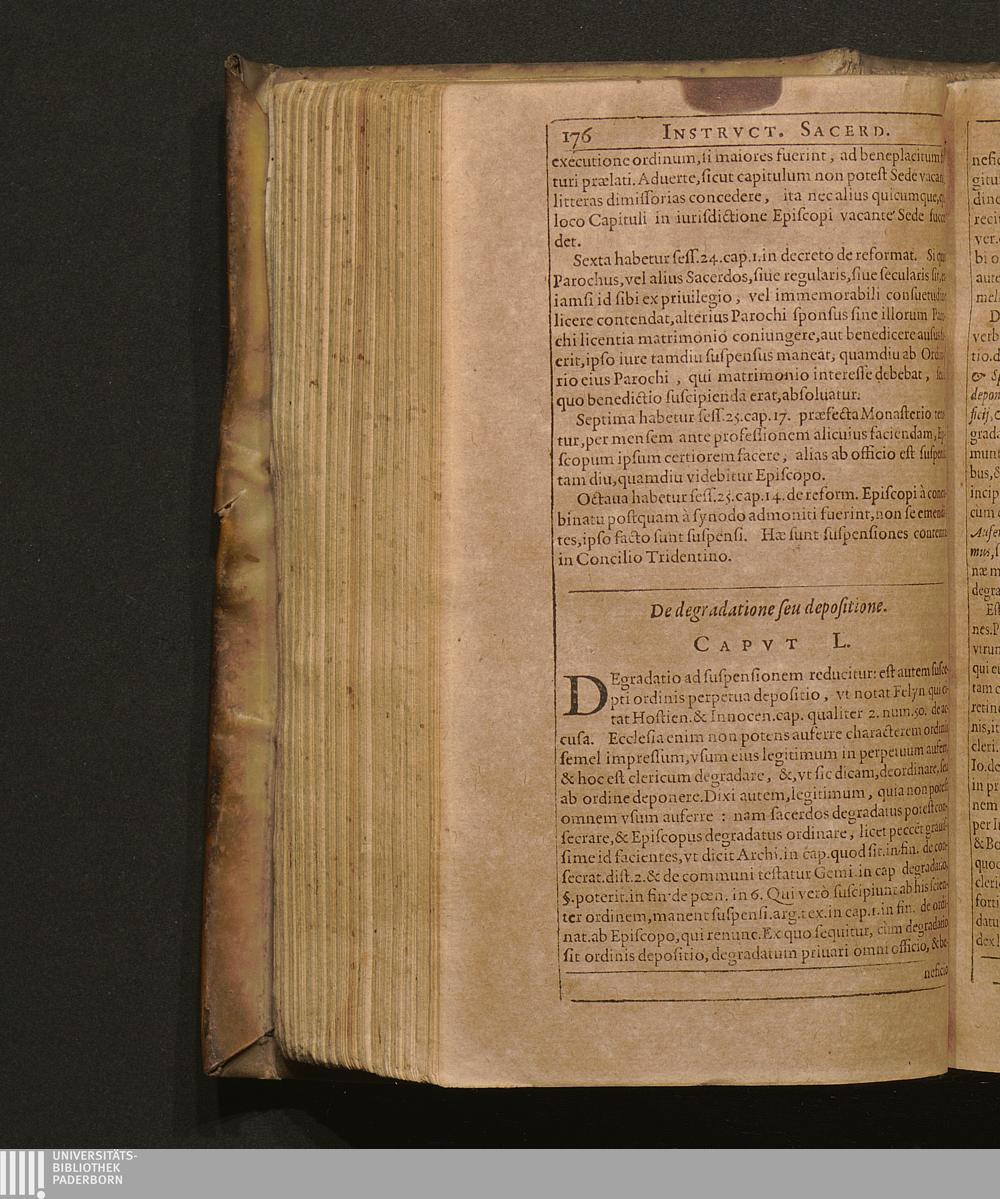 176 INSTRVCT. SACERD.
executione ordinum, si maiores fuerint, ad beneplacitum
turi prælati. Aduerte, sicut capitulum non potest Sede vacan
litteras dimissorias concedere, ita nec alius quicumque,
loco Capituli in iurisdictione Episcopi vacante Sede succe
det.
Sexta habetur sess. 24. cap. 1. in decreto de reformat. Si quis
Parochus, vel alius Sacerdos, siue regularis, siue secularis sit, et
iamsi id sibi ex priuilegio, vel immemorabili consuetudine
licere contendat, alterius Parochi sponsus sine illorum Paro
chi licentia matrimonio coniungere, aut benedicere ausus
erit, ipso iure tamdiu suspensus maneat, quamdiu ab Ordina
rio eius Parochi, qui matrimonio interesse debebat, seu
quo benedictio suscipienda erat, absoluatur.
Septima habetur sess. 25. cap. 17. præfecta Monasterio tene
tur, per mensem ante professionem alicuius faciendam, Epi
scopum ipsum certiorem facere, alias ab officio est suspensa
tam diu, quamdiu videbitur Episcopo.
Octaua habetur sess. 25. cap. 14. de reform. Episcopi à concu
binatu postquam à synodo admoniti fuerint, non se emenda
tes, ipso facto sunt suspensi. Hæ sunt suspensiones contentæ
in Concilio Tridentino.
De degradatione seu depositione.
CAPVT L.
DEgradatio ad suspensionem reducitur: est autem susce-
pti ordinis perpetua depositio, vt notat Felyn qui ci-
tat Hostien. & Innocen. cap. qualiter 2. num. 50. de ac-
cusa. Ecclesia enim non potens auferre characterem ordinis
semel impressum, vsum eius legitimum in perpetuum aufert,
& hoc est clericum degradare, &, vt sic dicam, deordinare, seu
ab ordine deponere. Dixi autem, legitimum, quia non potest
omnem vsum auferre : nam sacerdos degradatus potest con-
secrare, & Episcopus degradatus ordinare, licet peccét grauis-
sime id facientes, vt dicit Archi. in cap. quod sit. in fin. de con-
secrat. dist. 2. & de communi testatur Gemi. in cap degradatio,
§. poterit. in fin de pœn. in 6. Qui verò suscipiunt ab his scien-
ter ordinem, manent suspensi. arg. tex. in cap. 1. in fin. de ordi-
nat. ab Episcopo, qui renunc. Ex quo sequitur, cùm degradatio
sit ordinis depositio, degradatum priuari omni officio, & be-
neficio
nefic
gitu
dine
recit
ver.
bi o
aute
mel
D
verb
tio. d
& Sp
depon
ficij,
grada
munt
bus, &
incip
cum
Aufer
mus, s
næ m
degra
Est
nes. P
vtrun
qui eu
tam c
retine
nis, it
cleri.
Io. de
in pr
nem
per In
& Bo
quoc
cleric
forti
datu
dex l
UNIVERSITÄTS-
BIBLIOTHEK
PADERBORN